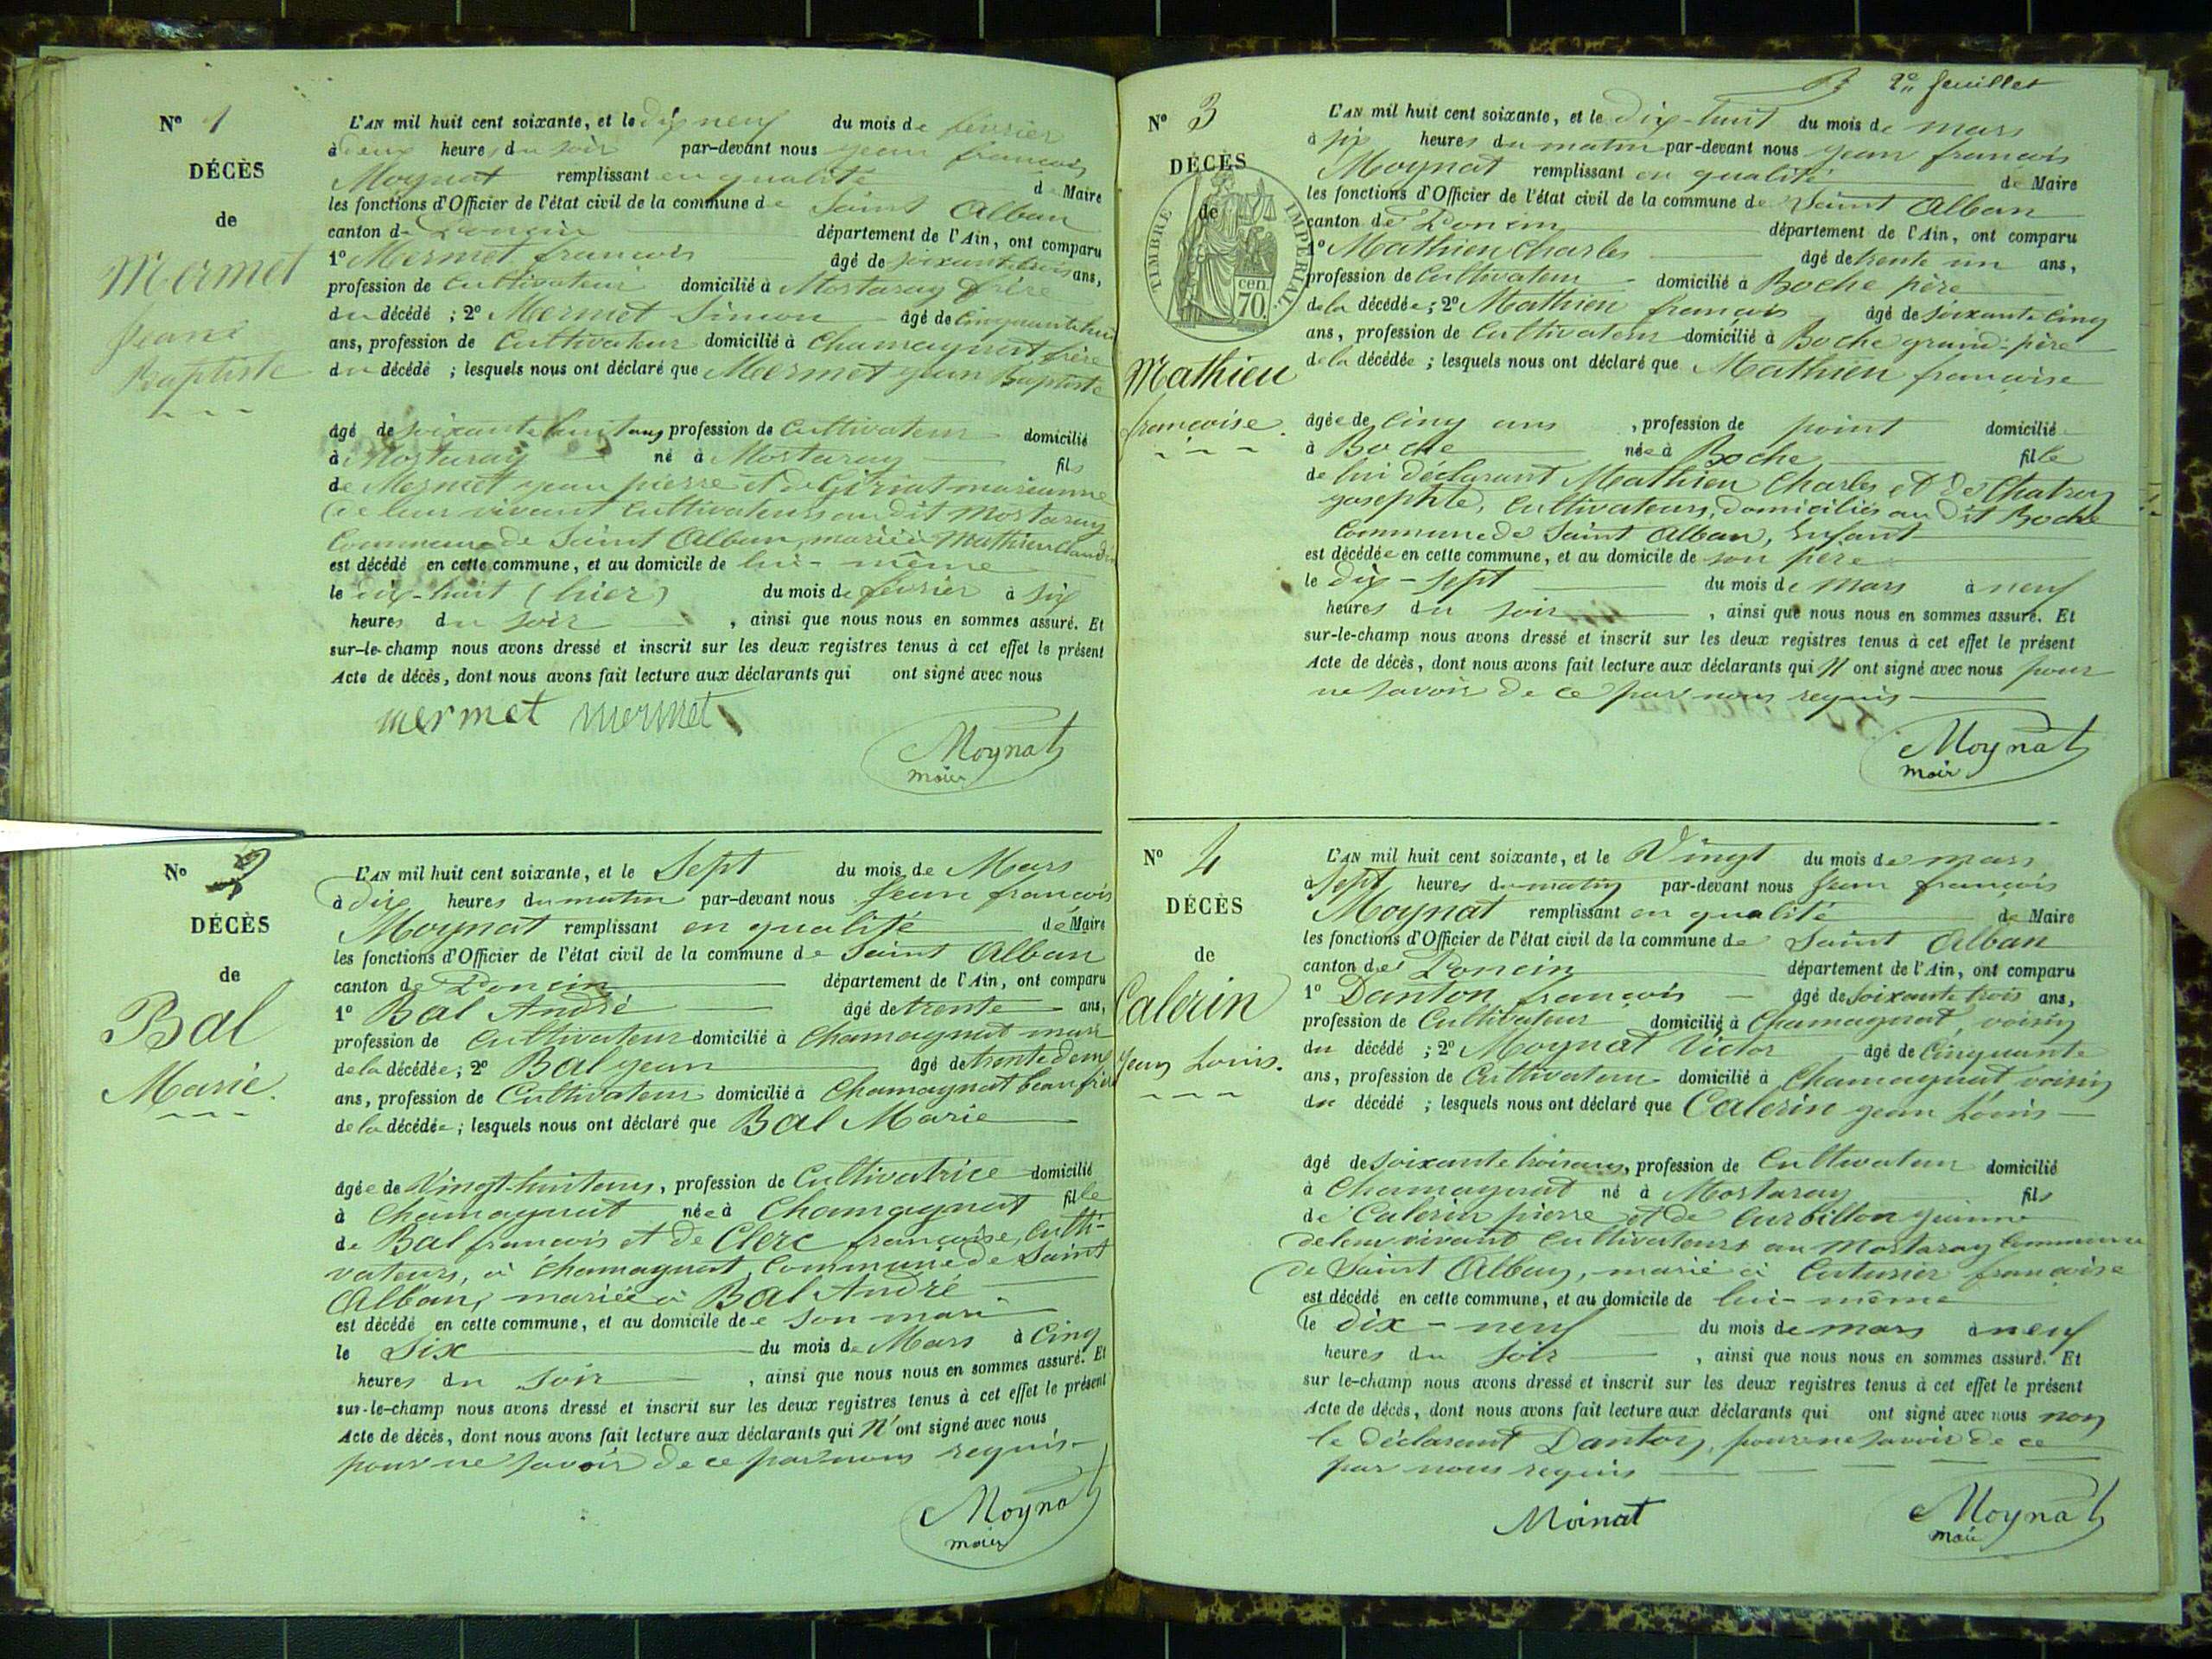 Nº 1
DÉCÈS
de
Mermet
Jean
Baptiste
L'AN mil huit cent soixante, et le dix neuf du mois de février
à deux heures du soir par-devant nous jean francois
Moynat remplissant en qualité de Maire
les fonctions d'Officier de l'état civil de la commune de Saint Alban
canton de Poncin département de l'Ain, ont comparu
1º Mermet francois âgé de soixante trois ans,
profession de Cultivateur domicilié à Mortaray frère
du décédé ; 2º Mermet Simon âgé de Cinquante huit
ans, profession de Cultivateur domicilié à Chamagnat frère
du décédé ; lesquels nous ont déclaré que Mermet jean Baptiste
âgé de soixante huit ans profession de Cultivateur domicilié
à Mortaray né à Mortaray fils
de Mermet jean pierre et de Giriat marianne
de leur vivant Cultivateurs au dit Mortaray
Commune de Saint Alban, marié à Mathieu
est décédé en cette commune, et au domicile de lui-même
le dix-huit (hier) du mois de février à six
heures du soir , ainsi que nous nous en sommes assuré. Et
sur-le-champ nous avons dressé et inscrit sur les deux registres tenus à cet effet le présent
Acte de décès, dont nous avons fait lecture aux déclarants qui ont signé avec nous
mermet mermet
Moynat
maire
No 2
DÉCÈS
de
Bal
Marie.
L'AN mil huit cent soixante, et le Sept du mois de Mars
à dix heures du matin par-devant nous Jean francois
Moynat remplissant en qualité de Maire
les fonctions d'Officier de l'état civil de la commune de Saint Alban
canton de Poncin département de l'Ain, ont comparu
1º Bal André âgé de trente ans,
profession de Cultivateur domicilié à Chamagnat mari
de la décédée ; 2º Bal jean âgé de trente deux
ans, profession de Cultivateur domicilié à Chamagnat beau frère
de la décédée ; lesquels nous ont déclaré que Bal Marie
âgée de Vingt-huit ans, profession de Cultivatrice domicilié
à Chamagnat née à Chamagnat fille
de Bal francois et de Clerc francoise, culti-
vateurs, à Chamagnat, Commune de Saint
Alban, mariée à Bal André
est décédé en cette commune, et au domicile de son mari
le Six du mois de Mars à Cinq
heures du Soir , ainsi que nous nous en sommes assuré. Et
sur-le-champ nous avons dressé et inscrit sur les deux registres tenus à cet effet le présent
Acte de décès, dont nous avons fait lecture aux déclarants qui N'ont signé avec nous
pour ne savoir de ce par nous requis
Moynat
maire
2e feuillet
Nº 3
DÉCÈS
de
TIMBRE IMPÉRIAL
70 cen.
Mathieu
francoise.
L'AN mil huit cent soixante, et le dix-huit du mois de mars
à six heures du matin par-devant nous jean francois
Moynat remplissant en qualité de Maire
les fonctions d'Officier de l'état civil de la commune de Saint Alban
canton de Poncin département de l'Ain, ont comparu
1º Mathieu Charles âgé de trente un ans,
profession de Cultivateur domicilié à Boche père
de la décédée ; 2º Mathieu francois âgé de soixante cinq
ans, profession de Cultivateur domicilié à Boche grand-père
de la décédée ; lesquels nous ont déclaré que Mathieu francoise
âgée de Cinq ans , profession de point domicilié
à Boche née à Boche fille
de lui déclarant Mathieu Charles et de Chatroy
josephte, Cultivateurs, domiciliés au dit Boche
Commune de Saint Alban, Enfant
est décédée en cette commune, et au domicile de son père
le dix-sept du mois de mars à neuf
heures du soir , ainsi que nous nous en sommes assuré. Et
sur-le-champ nous avons dressé et inscrit sur les deux registres tenus à cet effet le présent
Acte de décès, dont nous avons fait lecture aux déclarants qui N ont signé avec nous pour
ne savoir de ce par nous requis
Moynat
mair
Nº 4
DÉCÈS
de
Calerin
Jean Louis.
L'AN mil huit cent soixante, et le Vingt du mois de mars
à Sept heures du matin par-devant nous jean françois
Moynat remplissant en qualité de Maire
les fonctions d'Officier de l'état civil de la commune de Saint Alban
canton de Poncin département de l'Ain, ont comparu
1º Danton françois âgé de soixante trois ans,
profession de Cultivateur domicilié à Chamagnat, voisin
du décédé ; 2º Moynat Victor âgé de Cinquante
ans, profession de Cultivateur domicilié à Chamagnat voisin
du décédé ; lesquels nous ont déclaré que Calerin jean Louis
âgé de soixante trois ans, profession de Cultivateur domicilié
à Chamagnat né à Mortaray fils
de Calerin pierre et de Curbillon jeanne
de leur vivant Cultivateurs au Mortaray Commune
de Saint Alban, marié à Cuturier francoise
est décédé en cette commune, et au domicile de lui-même
le dix-neuf du mois de mars à neuf
heures du soir , ainsi que nous nous en sommes assuré. Et
sur le-champ nous avons dressé et inscrit sur les deux registres tenus à cet effet le présent
Acte de décès, dont nous avons fait lecture aux déclarants qui ont signé avec nous non
le déclarant Danton, pour ne savoir de ce
par nous requis
Moinat
Moynat
mair